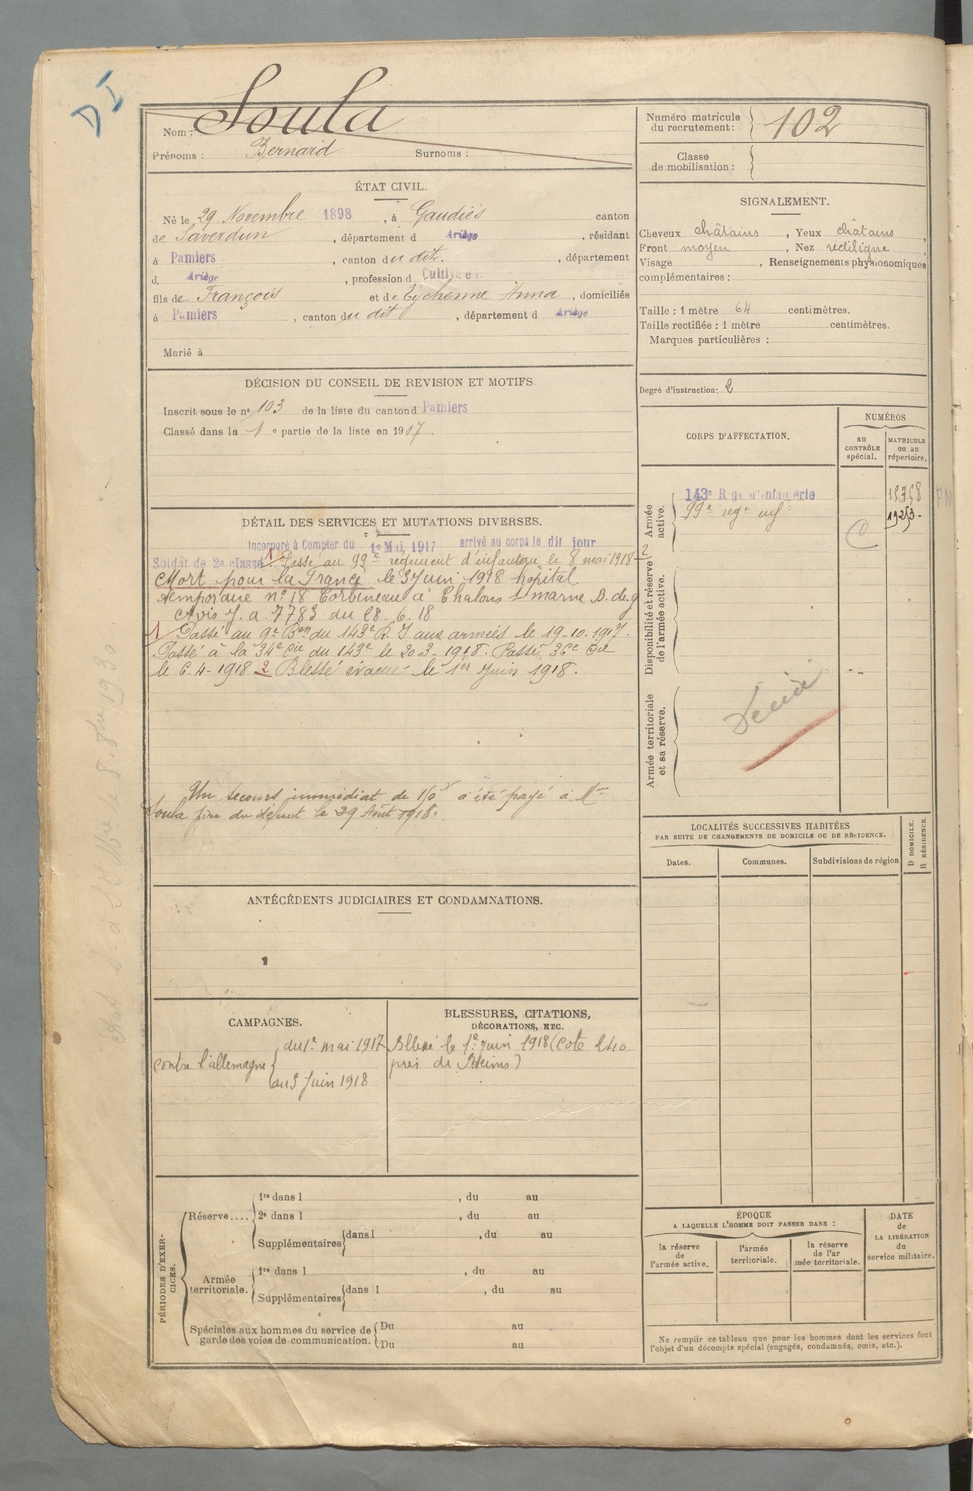 DI
Nom : Soula
Prénoms : Bernard Surnoms :
Numéro matricule
du recrutement : 102
Classe
de mobilisation :
ÉTAT CIVIL.
Né le 29 Novembre 1898, à Gaudiès canton
de Saverdun, département d Ariège, résidant
à Pamiers, canton du dit, département
d Ariège, profession d Cultivateur
fils de François et de Eychenne Anna, domiciliés
à Pamiers, canton du dit, département d Ariège
Marié à
SIGNALEMENT.
Cheveux châtains, Yeux châtains,
Front moyen, Nez rectiligne
Visage , Renseignements physionomiques
complémentaires :
Taille : 1 mètre 64 centimètres.
Taille rectifiée : 1 mètre centimètres.
Marques particulières :
Degré d'instruction : 2
DÉCISION DU CONSEIL DE REVISION ET MOTIFS.
Inscrit sous le n° 103 de la liste du canton d Pamiers
Classé dans la 1e partie de la liste en 1917.
CORPS D'AFFECTATION.
NUMÉROS
AU CONTRÔLE spécial.
MATRICULE ou au répertoire.
Armée active.
143e Rég. d'Infanterie 15758
99e reg. inf. 19253
Disponibilité et réserve de l'armée active.
Armée territoriale et sa réserve.
Décédé
DÉTAIL DES SERVICES ET MUTATIONS DIVERSES.
Incorporé à Compter du 1e Mai 1917 arrivé au corps le dit jour
Soldat de 2e classe 1 Passé au 99e régiment d'infanterie le 8 mai 1918 2
Mort pour la France le 3 Juin 1918 hôpital
temporaire n° 18 Corbineau à Chalons s/ marne
Avis 7.a 7783 du 28.6.18
1 Passé au 9e Bon du 143e R.I aux armées le 19-10-1917.
Passé à la 34e Cie du 143e le 20-3-1918. Passé 36e Cie
le 6-4-1918 2 Blessé évacué le 1er Juin 1918.
Un secours immédiat de 150f a été payé à Mr
Soula père du défunt le 29 Août 1918.
ANTÉCÉDENTS JUDICIAIRES ET CONDAMNATIONS.
LOCALITÉS SUCCESSIVES HABITÉES
PAR SUITE DE CHANGEMENTS DE DOMICILE OU DE RÉSIDENCE.
Dates. Communes. Subdivisions de région
D DOMICILE.
R RÉSIDENCE.
CAMPAGNES.
contre l'allemagne
du 1e mai 1917
au 3 Juin 1918
BLESSURES, CITATIONS,
DÉCORATIONS, ETC.
Blessé le 1e Juin 1918 (cote 240
près de Reims)
PÉRIODES D'EXERCICES.
Réserve....
1re dans l , du au
2e dans l , du au
Supplémentaires dans l , du au
Armée territoriale.
1re dans l , du au
Supplémentaires dans l , du au
Spéciales aux hommes du service de
garde des voies de communication.
Du au
Du au
ÉPOQUE
A LAQUELLE L'HOMME DOIT PASSER DANS :
la réserve de l'armée active.
l'armée territoriale.
la réserve de l'armée territoriale.
DATE
de
LA LIBÉRATION
du
service militaire.
Ne remplir ce tableau que pour les hommes dont les services font
l'objet d'un décompte spécial (engagés, condamnés, omis, etc.).